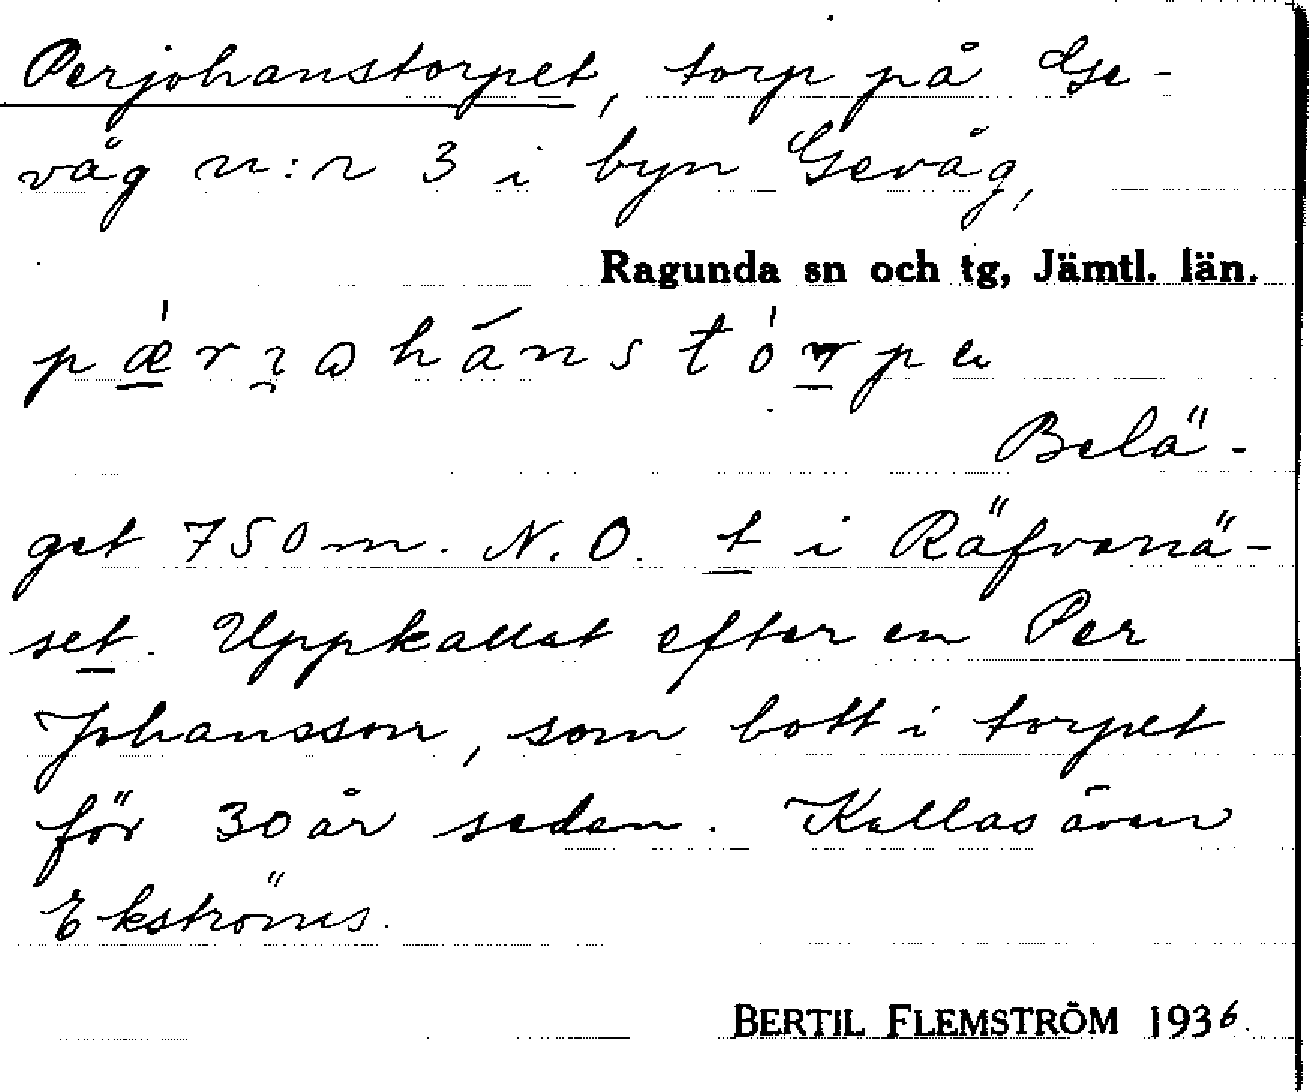 Perjohanstorpet, torp på Ge-
våg n:r 3 i byn Gevåg,
Ragunda sn och tg, Jämtl. län.
Belä-
get 750 m. N.O. t i Räfvenä-
set. Uppkallat efter en Per
Johansson, som bott i torpet
för 30 år sedan. Kallas även
Ekströms.
BERTIL FLEMSTRÖM 1936.